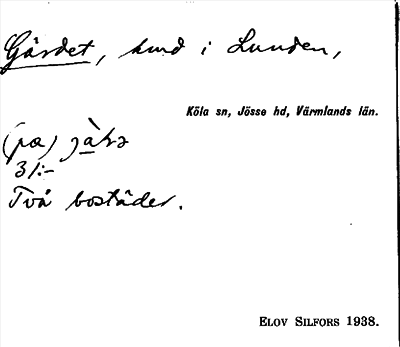 Gärdet, hmd i Lunden,
Köla sn, Jösse hd, Värmlands län.
(pa)
31:-
Två bostäder.
ELOV SILFORS 1938.